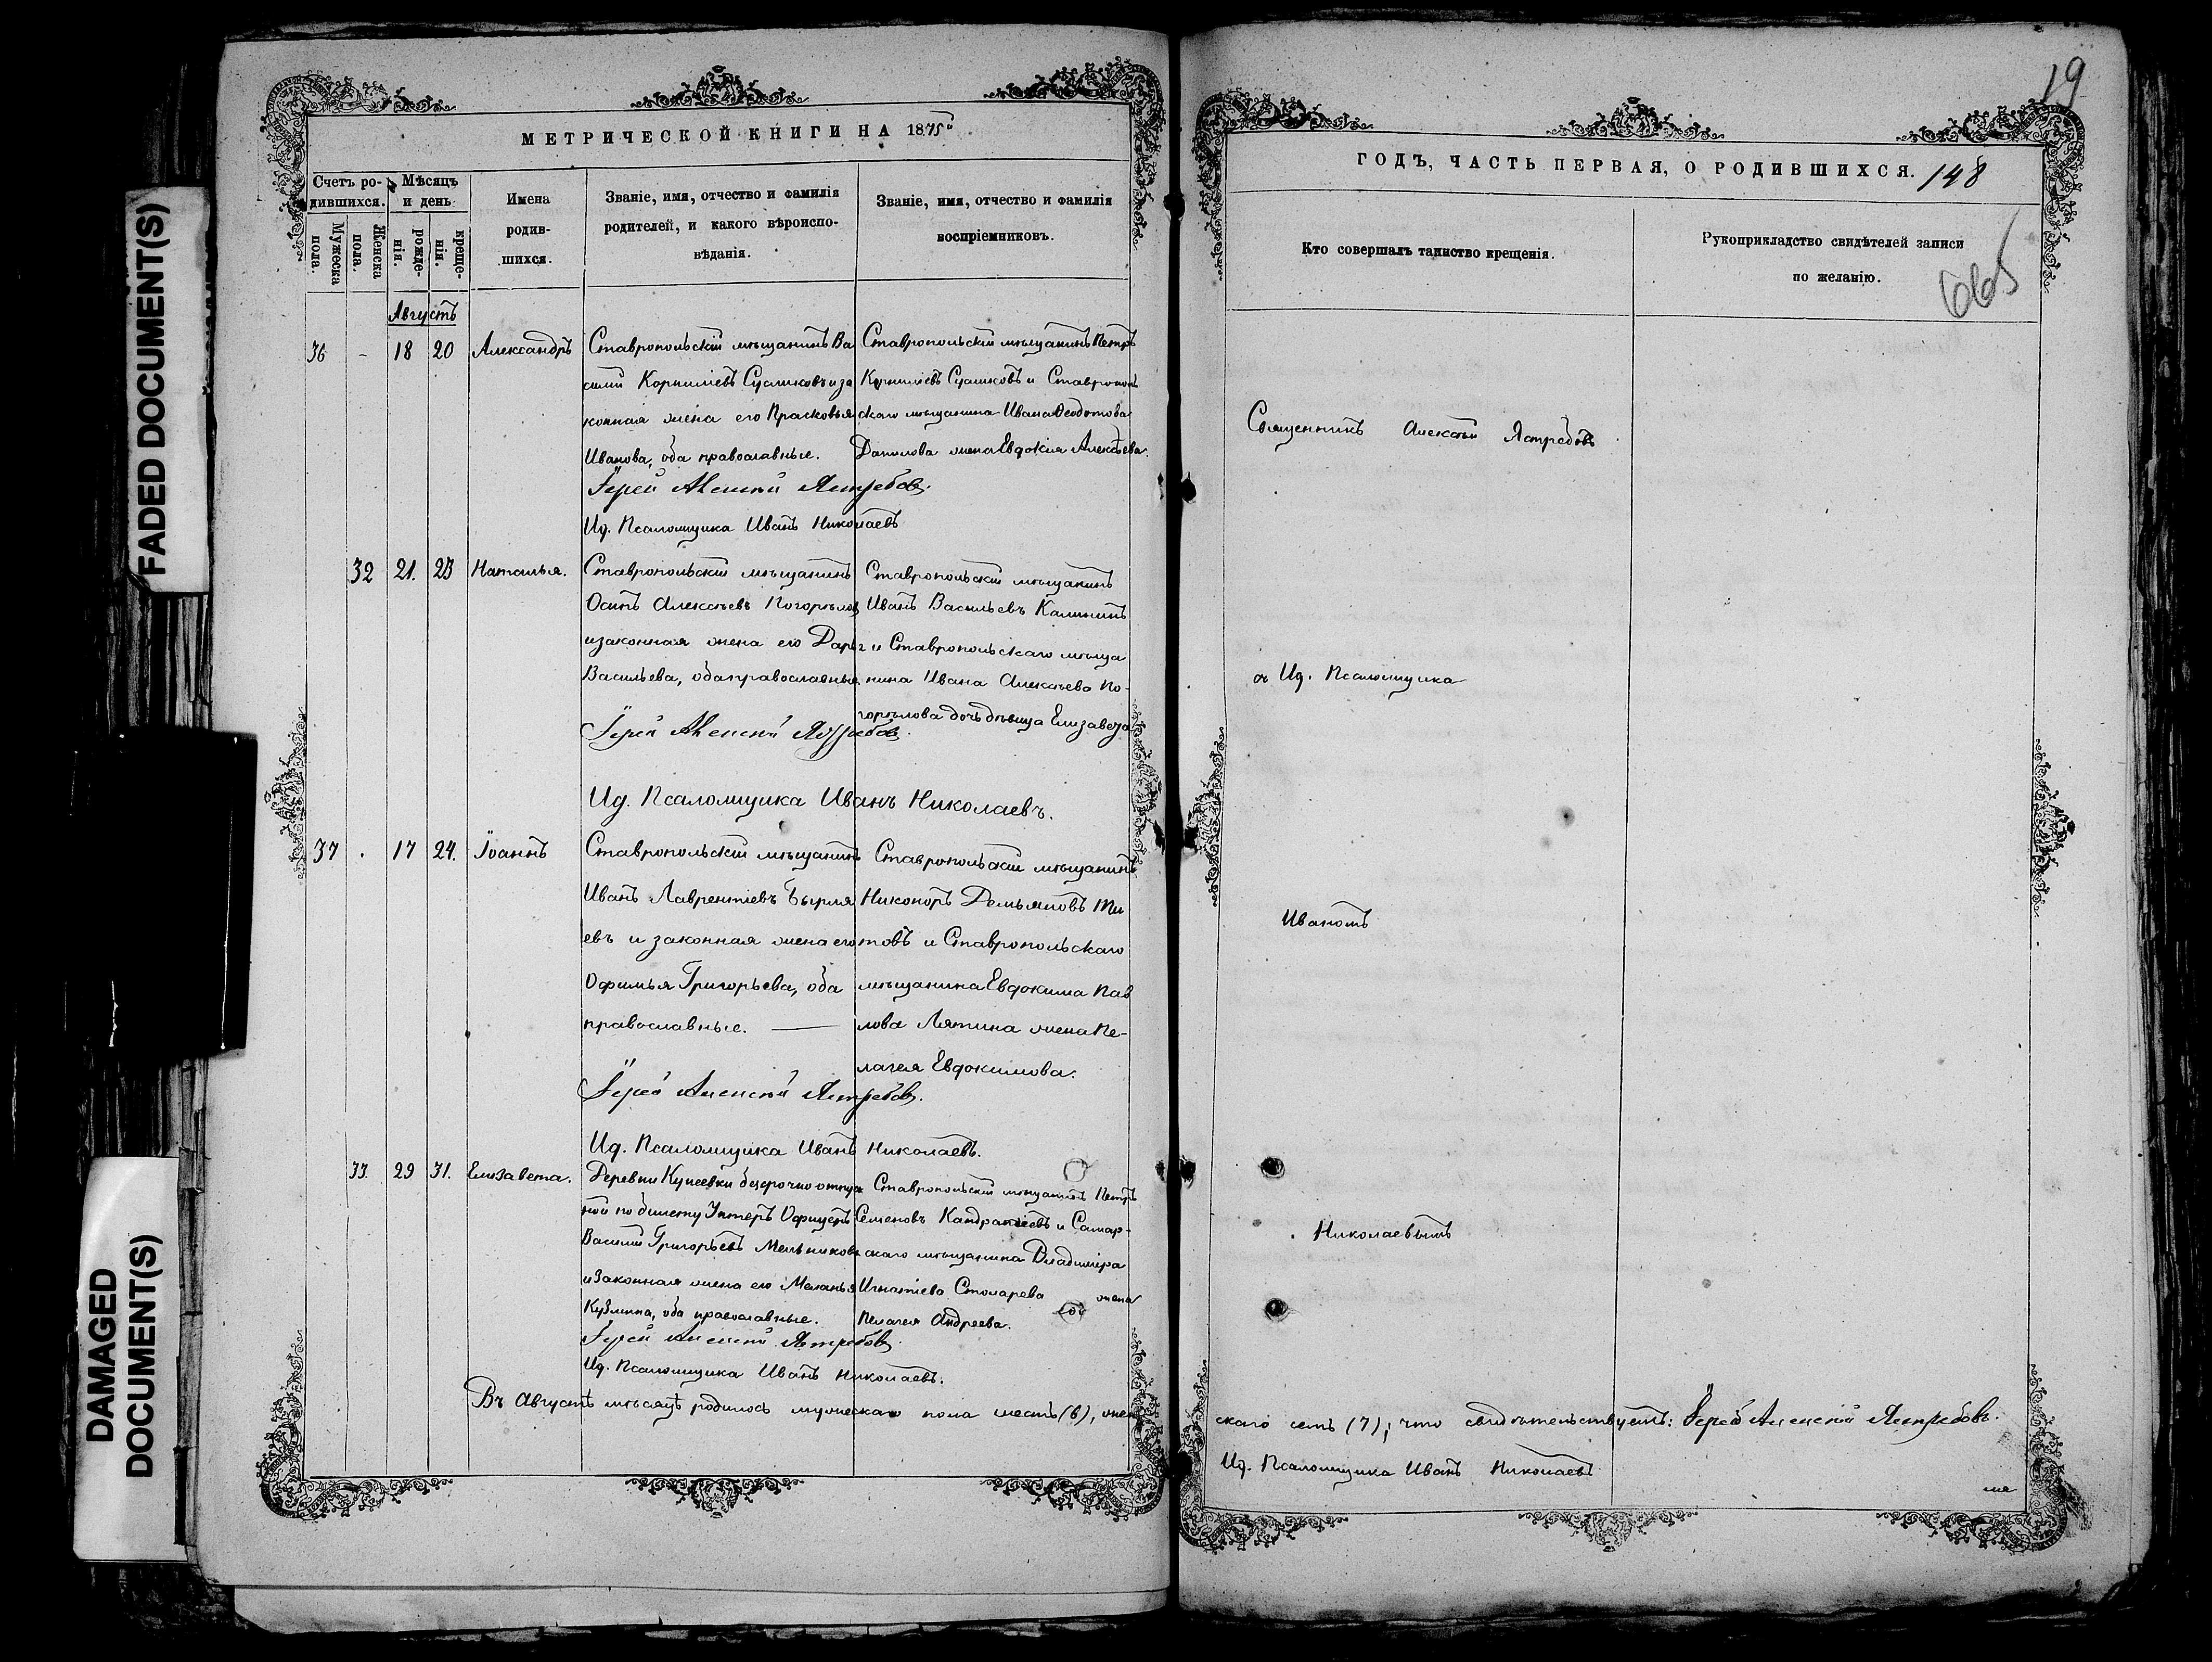 FADED DOCUMENT(S)
DAMAGED
DOCUMENT(S)
МЕТРИЧЕСКОЙ КНИГИ НА 1875
Счетъ ро-
дившихся.
Мужеска
пола.
Женска
пола.
Мѣсяцъ
и день
рожде-
нія.
креще-
нія.
Имена
родив-
шихся.
Званіе, имя, отчество и фамилія
родителей, и какого вѣроиспо-
вѣданія.
Званіе, имя, отчество и фамилія
воспріемниковъ.
Августъ
36 - 18 20 Александръ
Ставропольскій мѣщанинъ Ва
силій Корниліевъ Сусликовъ и за
конная жена его Прасковья
Иванова, оба православные.
Ставропольскій мѣщанинъ Петръ
Корниліевъ Сусликовъ и Ставрополь
скаго мѣщанина Ивана Ѳеодотова
Данилова жена Евдокія Алексѣева.
Іерей Алексій Ястребовъ.
Ид. Псаломщика Иванъ Николаевъ
32 21. 23 Наталья.
Ставропольскій мѣщанинъ
Осипъ Алексѣевъ Погорѣловъ
и законная жена его Дарья
Васильева, оба православные
Ставропольскій мѣщанинъ
Иванъ Васильевъ Калининъ
и Ставропольскаго мѣща
нина Ивана Алексѣева По-
горѣлова дочь дѣвица Елизавета
Іерей Алексій Ястребовъ.
Ид. Псаломщика Иванъ Николаевъ.
37 . 17 24. Іоаннъ
Ставропольскій мѣщанинъ
Иванъ Лаврентіевъ Бырля
евъ и законная жена его
Офимья Григорьева, оба
православные.
Ставропольскій мѣщанинъ
Никоноръ Демьяновъ Ти
товъ и Ставропольскаго
мѣщанина Евдокима Пав
лова Лятина жена Пе-
лагея Евдокимова.
Іерей Алексій Ястребовъ.
Ид. Псаломщика Иванъ Николаевъ.
33. 29 31. Елизавета.
Деревни Кунеевки безсрочно отпуск
ной по билету Унтеръ Офицеръ
Василій Григорьевъ Мельниковъ
и законная жена его Меланья
Кузмина, оба православные.
Ставропольскій мѣщанинъ Петръ
Семеновъ Кандратіевъ и Самар-
скаго мѣщанина Владиміра
Игнатіева Столарева жена
Пелагея Андреева.
Іерей Алексій Ястребовъ.
Ид. Псаломщика Иванъ Николаевъ.
Въ Августѣ мѣсяцѣ родилось мужескаго пола шесть (6), жен
19
ГОДЪ, ЧАСТЬ ПЕРВАЯ, О РОДИВШИХСЯ. 148
Кто совершалъ таинство крещенія.
Рукоприкладство свидѣтелей записи
по желанію.
665
Священникъ Алексѣй Ястребовъ
съ Ид. Псаломщика
Иваномъ
Николаевымъ
скаго семь (7); что свидѣтельствуетъ: Іерей Алексій Ястребовъ.
Ид. Псаломщика Иванъ Николаевъ